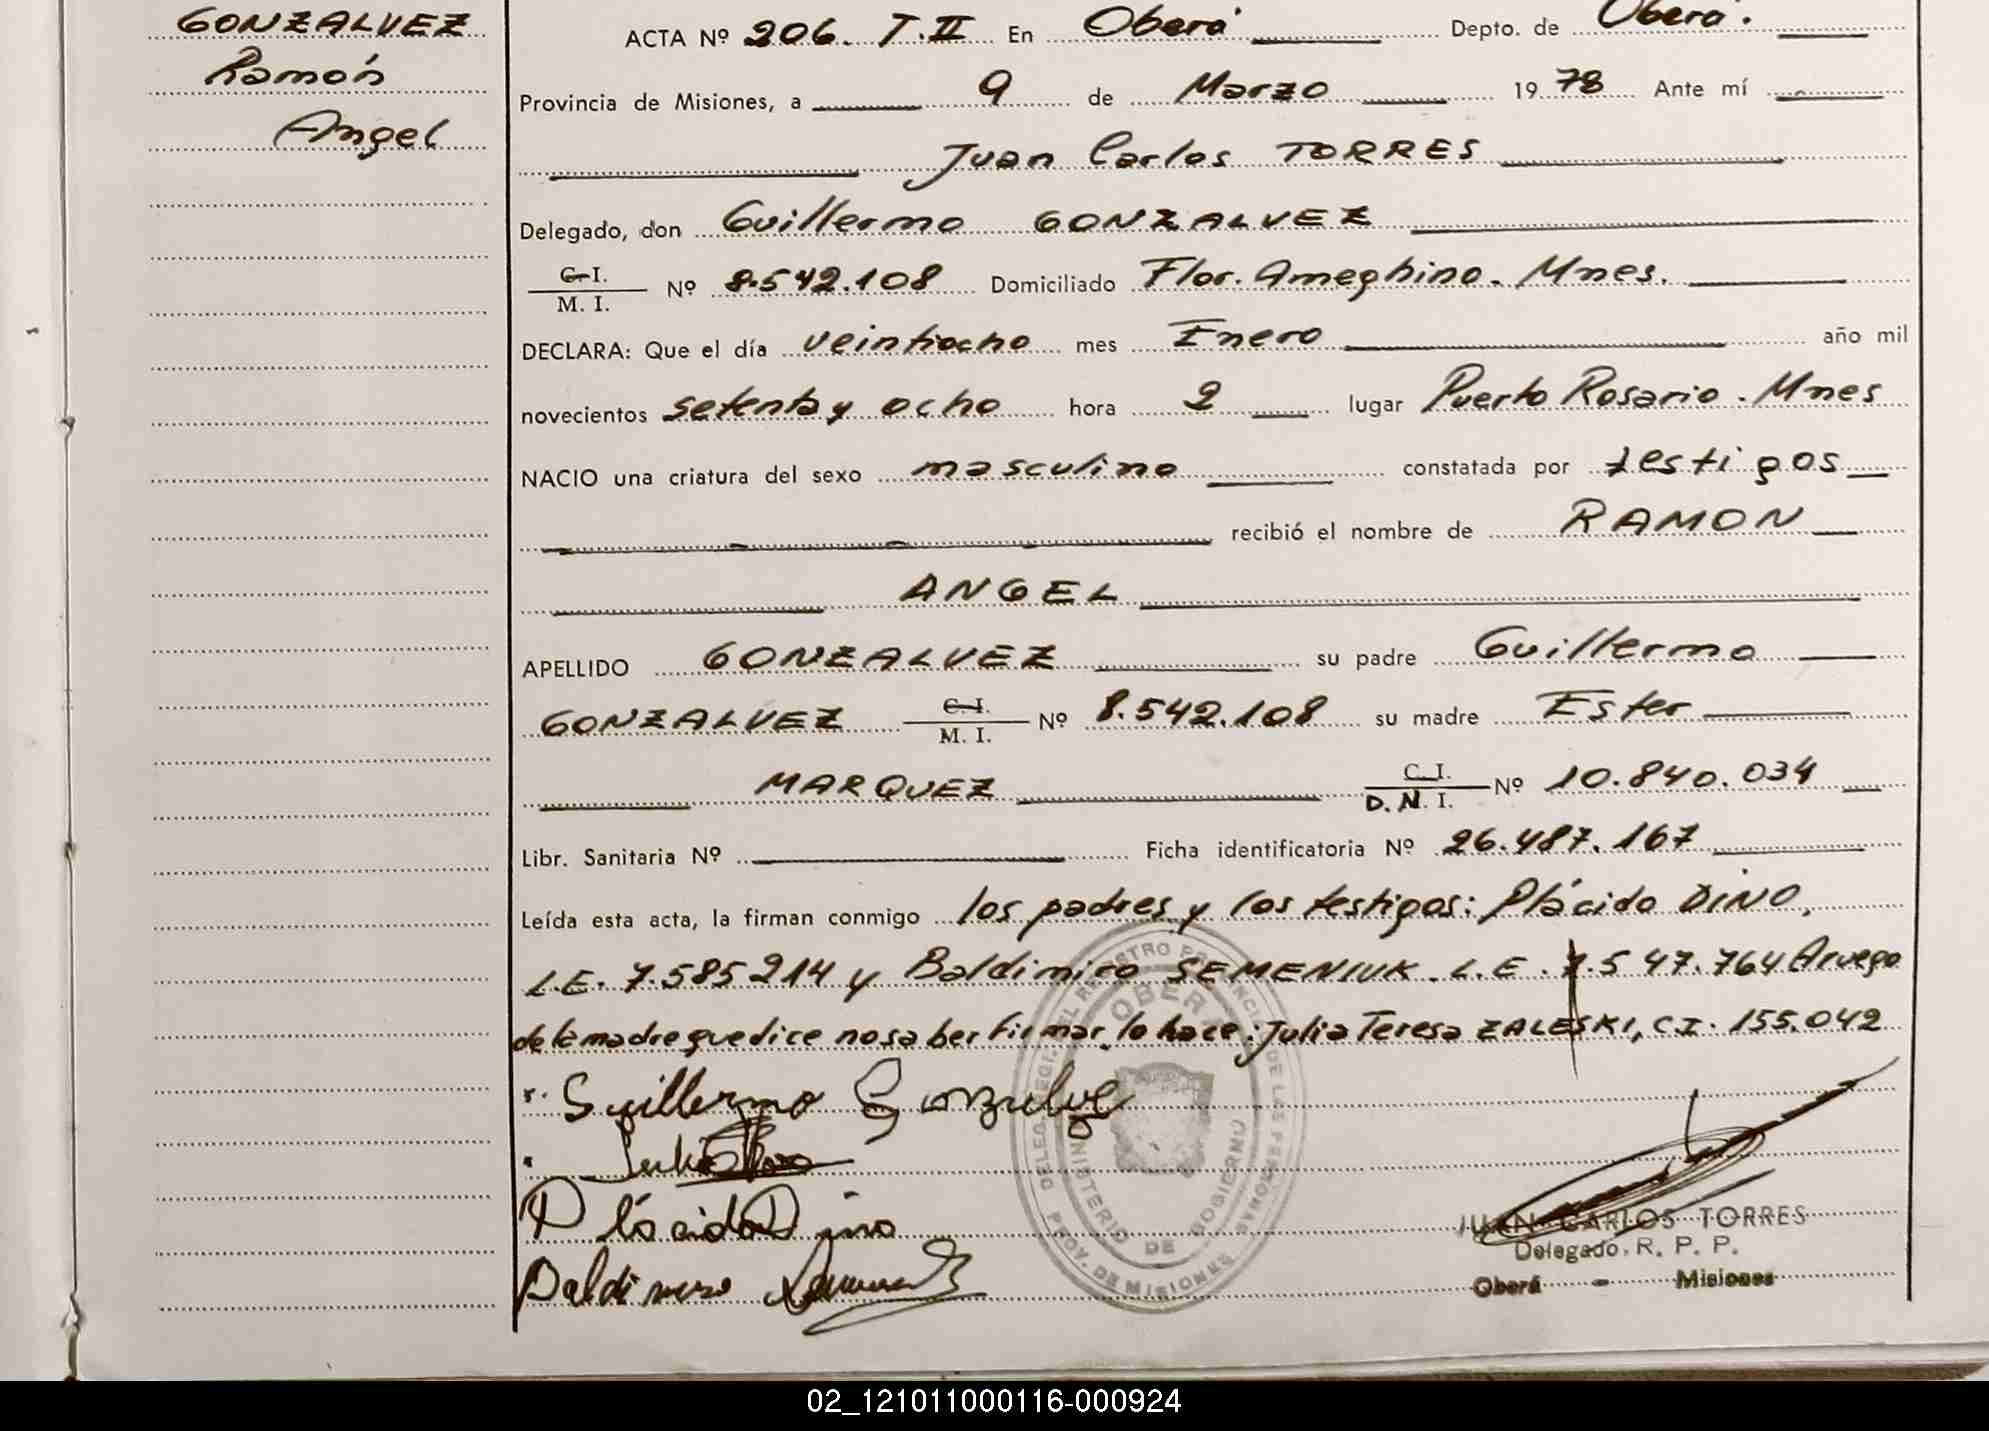 GONZALVEZ
Ramón
Angel
ACTA Nº 206. T.II En Oberá Depto. de Oberá.
Provincia de Misiones, a 9 de Marzo 1978 Ante mí
Juan Carlos TORRES
Delegado, don Guillermo GONZALVEZ
C.I.
M. I. Nº 8.542.108 Domiciliado Flor. Ameghino. Mnes.
DECLARA: Que el día veintiocho mes Enero año mil
novecientos setenta y ocho hora 2 lugar Puerto Rosario. Mnes
NACIO una criatura del sexo masculino constatada por testigos
recibió el nombre de RAMON
ANGEL
APELLIDO GONZALVEZ su padre Guillermo
GONZALVEZ C.I. M. I. Nº 8.542.108 su madre Ester
MARQUEZ C.I. D.N.I. Nº 10.840.034
Libr. Sanitaria Nº Ficha identificatoria Nº 26.487.167
Leída esta acta, la firman conmigo los padres y los testigos: Plácido DINO,
L.E. 7.585214 y Baldimiro SEMENIUK. L.E. 7.547.764 Aruego
de la madre que dice no saber firmar, lo hace: Julia Teresa ZALESKI, C.I. 155.042
Guillermo Gonzalve
Plácido Dino
DELEG. REGI. DEL REGISTRO PROVINCIAL DE LAS PERSONAS
OBERA
MINISTERIO DE GOBIERNO
PROV. DE MISIONES
JUAN CARLOS TORRES
Delegado. R. P. P.
Oberá - Misiones
02_121011000116-000924